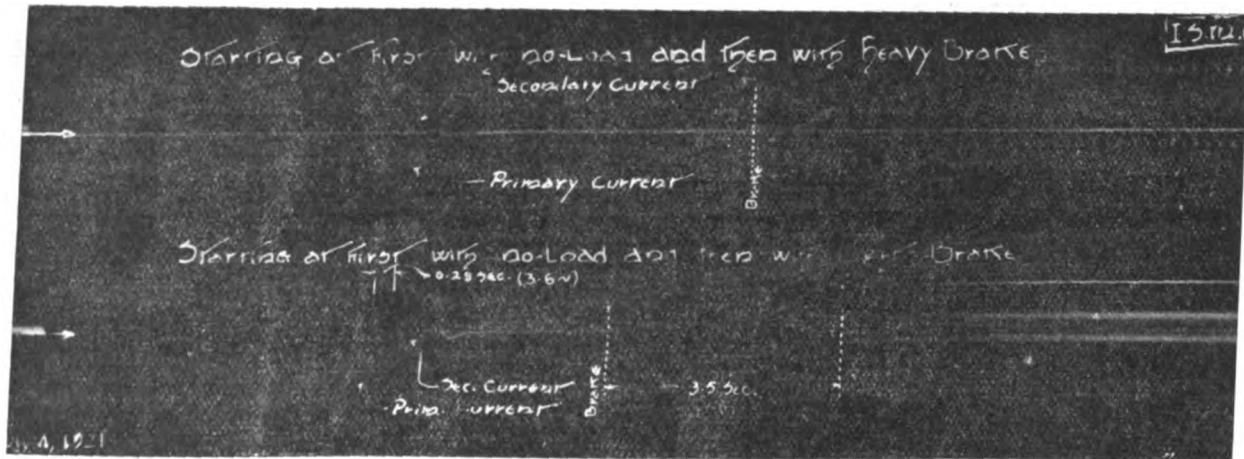 I S.M.
Starting at First with no-Load and then with Heavy Brake
Secondary Current
Primary Current
Brake
Starting at First with no-Load and then with Brake
0.28 Sec. (3.6~)
Sec. Current
Prim. Current
Brake
3.5 Sec.